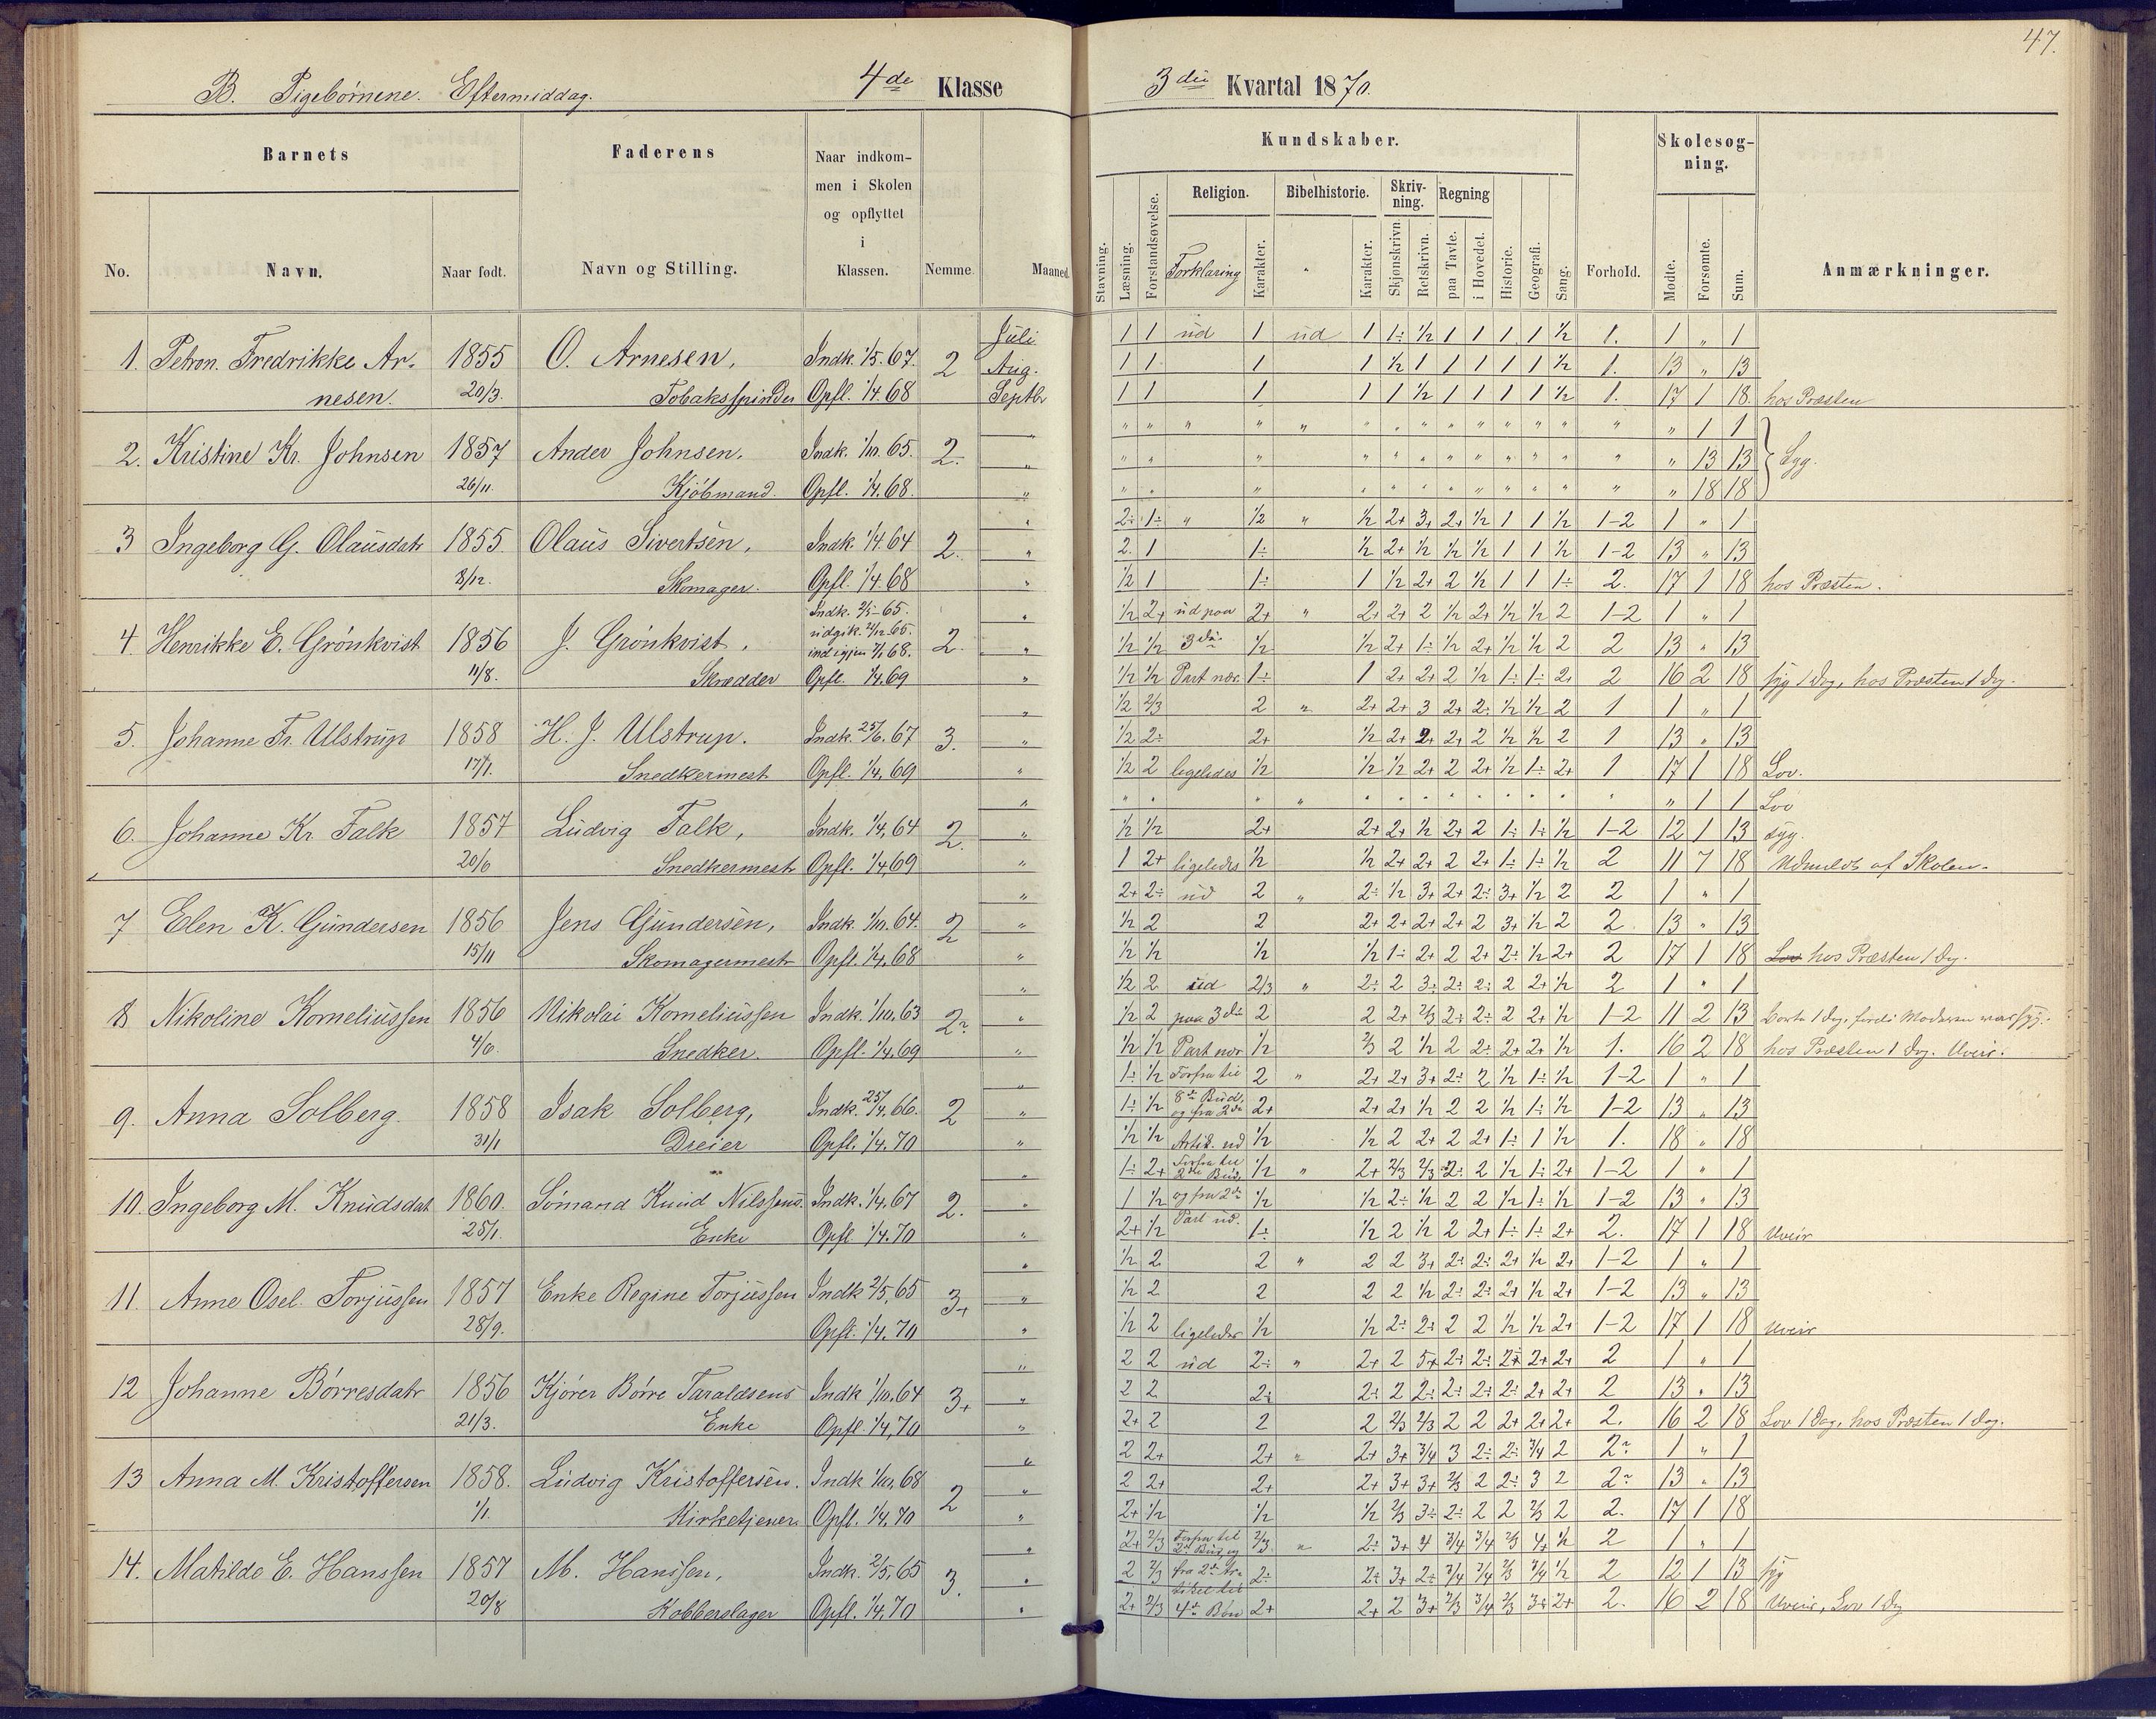 47.
B. Pigebörnene. Eftermiddag. 4de Klasse
3die Kvartal 1870.
Barnets
Faderens
Naar indkommen i Skolen og opflyttet i Klassen.
Nemme
Maaned
No.
Navn.
Naar født.
Navn og Stilling.
Kundskaber.
Skolesøgning.
Stavning.
Læsning.
Forstandsøvelse.
Religion.
Forklaring
Karakter.
Bibelhistorie.
Karakter.
Skrivning.
Skjønskrivn.
Retskrivn.
Regning
paa Tavle.
i Hovedet.
Historie.
Geografi.
Sang.
Forhold.
Mødte.
Forsømte.
Sum.
Anmærkninger.
Juli 1 1 ud 1 ud 1 1÷ ½ 1 1 1 1 ½ 1. 1 „ 1
1. Petron. Fredrikke Ar- 1855 O. Arnesen, Indk. 1/5. 67. 2 Aug. 1 1 1 1 ½ 1 1 1 1 1 ½ 1. 13 „ 13
nesen. 20/3. Tobaksspinder Opfl. 1/4. 68 Septbr 1 1 1 1 1 ½ 1 1 1 1 ½ 1. 17 1 18. hos Præsten
„ „ 1 1
2. Kristine Kr. Johnsen 1857 Ander Johnsen, Indk. 1/10. 65. 2. „ „ 13 13 Syg.
26/11. Kjöbmand. Opfl. 1/4. 68. „ „ 18 18
„ 2÷ 1÷ „ ½ „ ½ 2+ 3+ 2+ ½ 1 1 ½ 1-2 1 „ 1
3 Ingeborg G. Olausdatr 1855 Olaus Sivertsen, Indk. 1/4. 64 2. „ 2. 1 1÷ ½ 2+ ½ ½ ½ 1 1 ½ 1-2 13 „ 13
8/12. Skomager. Opfl. 1/4. 68 „ ½ 1 1÷ 1 ½ 2+ 2 ½ 1 1 1÷ 2. 17 1 18 hos Præsten.
Indk. 2/5-65. „ ½ 2+ ud paa 2+ „ 2+ 2+ 2 ½ 2+ ½ ½ 2 1-2 1 „ 1
udgik. 21/12 65.
4. Henrikke E. Grönkvist 1856 J. Grönkvist, ind igjen 7/1 68. 2. „ ½ ½ 3die ½ ½ 2+ 1÷ ½ 2+ ½ ½ 2 2 13 „ 13
11/8. Skrædder Opfl. 1/4. 69 „ ½ ½ Part nær. 1÷ 1 2+ 2+ 2 ½ 1÷ 1÷ 2+ 2 16 2 18 syg 1 Dag, hos Præsten 1 Dg.
„ ½ 2/3 2 „ 2+ 2+ 3 2+ 2÷ ½ ½ 2 1 1 „ 1
5. Johanne Fr. Ulstrup 1858 H. J. Ulstrup. Indk. 25/6. 67 3. „ ½ 2÷ 2+ ½ 2+ 2+ 2+ 2 ½ ½ 2 1 13 „ 13
17/1. Snedkermest Opfl. 1/4. 69 „ ½ 2 ligeledes ½ ½ ½ 2+ 2 2+ ½ 1÷ 2+ 1 17 1 18 Lov.
„ „ 1 1 Lov
6. Johanne Kr. Falk 1857 Ludvig Falk, Indk. 1/4. 64 2. „ ½ ½ 2+ 2+ 2+ ½ 2+ 2 1÷ 1÷ ½ 1-2 12 1 13 syg.
20/6 Snedkermestr Opfl. 1/4. 69 „ 1 2+ ligeledes ½ ½ 2+ 2+ 2 2+ 1÷ 1÷ ½ 2 11 7 18 Udmeldt af Skolen.
„ 2+ 2÷ ud 2 „ 2÷ ½ 3+ 2+ 2÷ 3+ ½ 2 2 1 „ 1
7 Elen K. Gundersen 1856 Jens Gundersen, Indk. 1/10. 64. 2 „ ½ 2 2 2+ 2+ 2+ 2+ 2 3+ ½ 2 2. 13 „ 13
15/11 Skomagermestr Opfl. 1/4. 68 „ ½ ½ ½ ½ 1÷ 2+ 2 2+ 2÷ ½ 2+ 2 17 1 18 Lov hos Præsten 1 Dg.
„ ½ 2 ud 2/3 „ 2÷ 2 3÷ 2÷ 2÷ 2 2+ ½ 2 1 „ 1
8 Nikoline Korneliussen 1856 Nikolai Korneliussen Indk. 1/10. 63 2÷ „ ½ 2 paa 3die 2 2 2+ 2/3 2÷ 2÷ 2 2+ ½ 1-2 11 2 13 borte 1 Dag, fordi Moderen var syg.
4/6. Snedker. Opfl. 1/4. 69 „ ½ ½ Part nær ½ 2/3 2 ½ 2 2÷ 2+ 2+ ½ 1. 16 2 18 hos Præsten 1 Dag. Uveir.
„ 1÷ ½ Forfra til 2 „ 2+ 2+ 3+ 2÷ 2 ½ 1÷ ½ 1-2 1 „ 1
9. Anna Solberg. 1858 Isak Solberg, Indk. 25/4. 66. 2 „ 1÷ ½ 8de Bud, og fra 2den 2+ 2+ 2+ ½ 2 2 ½ 1÷ ½ 1-2 13 „ 13
31/1 Dreier Opfl. 1/4. 70 „ ½ ½ Artik. ud ½ ½ 2 2+ 2 2+ 1÷ 1 ½ 1. 18 „ 18
„ 1÷ 2+ Forfra til 2det Bud, ½ „ 2+ 2/3 2/3 2÷ 2 ½ 1÷ 2+ 1-2 1 „ 1
10. Ingeborg M. Knudsdat 1860. Sömand Knud Nilssens Indk. 1/4. 67 2. „ 1 ½ og fra 2den ½ ½ 2÷ ½ 2 2 ½ 1÷ ½ 1-2 13 „ 13
25/1. Enke Opfl 1/4. 70 „ 2+ ½ Part ud. 1÷ ½ 2 ½ 2 2+ 1÷ 1÷ 2+ 2. 17 1 18 Uveir
„ ½ 2 2 „ 2 2 3+ 2÷ 2÷ 2+ ½ 2+ 1-2 1 „ 1
11. Anne Osel. Torjussen 1857 Enke Regine Torjussen Indk 2/5. 65 3+ „ ½ 2 2 2 2 ½ 2÷ 2÷ 2+ ½ 2+ 1-2 13 „ 13
28/9. Opfl. 1/4. 70 „ ½ 2 ligeledes ½ ½ 2÷ 2÷ 2 2 ½ ½ 2+ 1-2 17 1 18 Uveir
„ 2 2 ud 2÷ „ 2+ 2 5+ 2÷ 2÷ 2+ 2+ 2+ 2 1 „ 1
12 Johanne Börresdatr 1856 Kjörer Börre Taraldsens Indk 1/10. 64 3+ „ 2 2 2÷ 2÷ 2 2÷ 2÷ 2÷ 2÷ 2+ 2+ 2 13 „ 13
21/3. Enke Opfl. 1/4. 70 „ 2+ 2 2 2 2/3 2/3 2 2 2+ 2+ 2+ 2. 16 2 18 Lov 1 Dag, hos Præsten 1 Dag.
„ 2 2+ 2+ „ 2+ 3+ 3/4 3 2÷ 2÷ 3/4 2 2÷ 1 „ 1
13 Anna M. Kristoffersen 1858. Ludvig Kristoffersen. Indk 1/10. 68 2 „ 2 2+ 2+ 2+ 3+ 3+ 2/3 2 2÷ 3 2 2÷ 13 „ 13
1/1. Kirketjener Opfl. 1/4. 70 „ 2+ ½ ½ ½ 2/3 3÷ 2÷ 2 2 2/3 2 2. 17 1 18
„ 2+ 2/3 Forfra til 2det Bud, og 2/3 „ 2÷ 3+ 4 3/4 3/4 2/3 4+ ½ 2 1 „ 1
14. Matilde E. Hanssen 1857 M. Hanssen, Indk. 2/5. 65 3. „ 2 2/3 fra 2den Ar- 2÷ 2÷ 3+ 2÷ 3/4 3/4 2/3 3/4 ½ 2 12 1 13 syg
tikel til
20/8 Kobberslager Opfl. 1/4. 70 „ 2+ 2/3 4de Bön 2+ 2+ 2 3+ 2/3 3/4 2/3 3+ 2+ 2. 16 2 18 Uveir, Lov 1 Dg